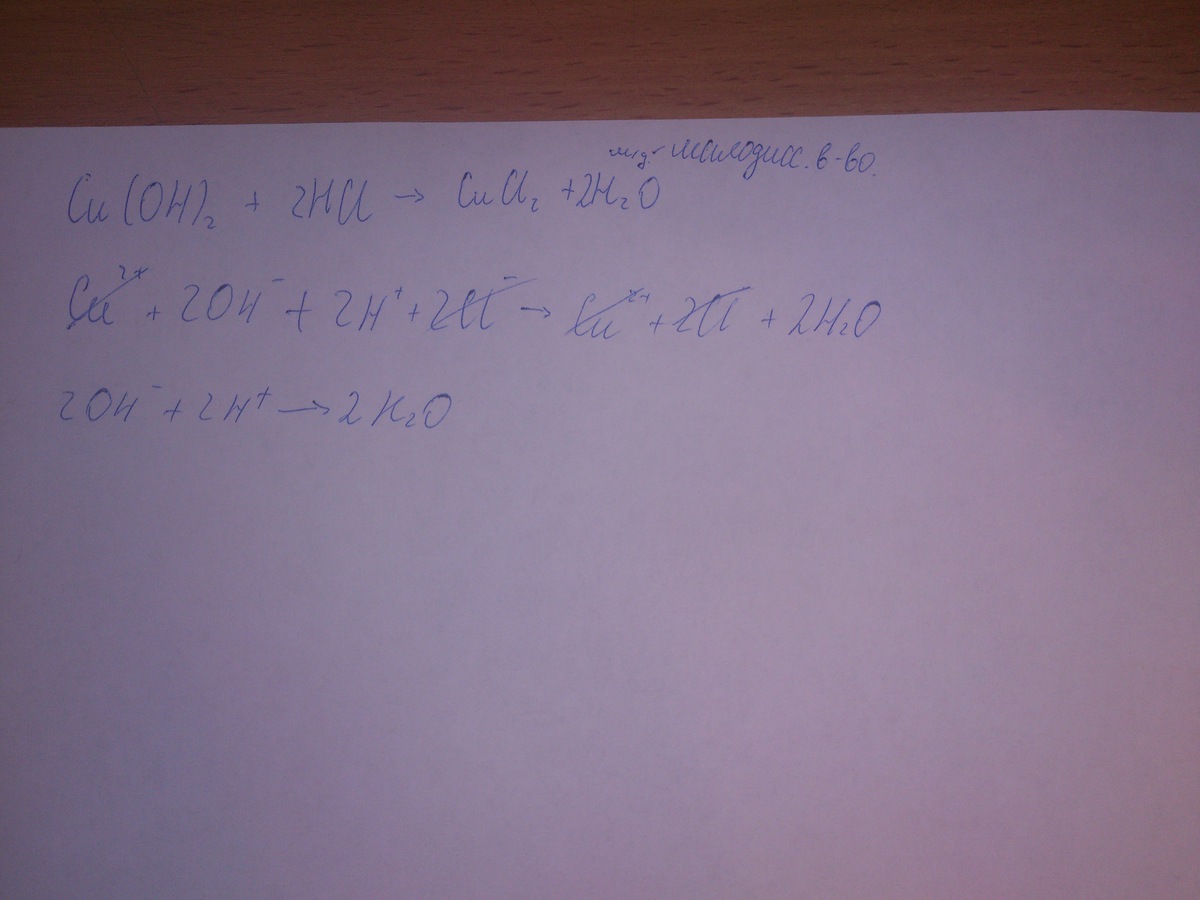 м.д.- малодисс. в-во.
Cu(OH)₂ + 2HCl → CuCl₂ + 2H₂O
Cu²⁺ + 2OH⁻ + 2H⁺ + 2Cl⁻ → Cu²⁺ + 2Cl + 2H₂O
2OH⁻ + 2H⁺ → 2H₂O